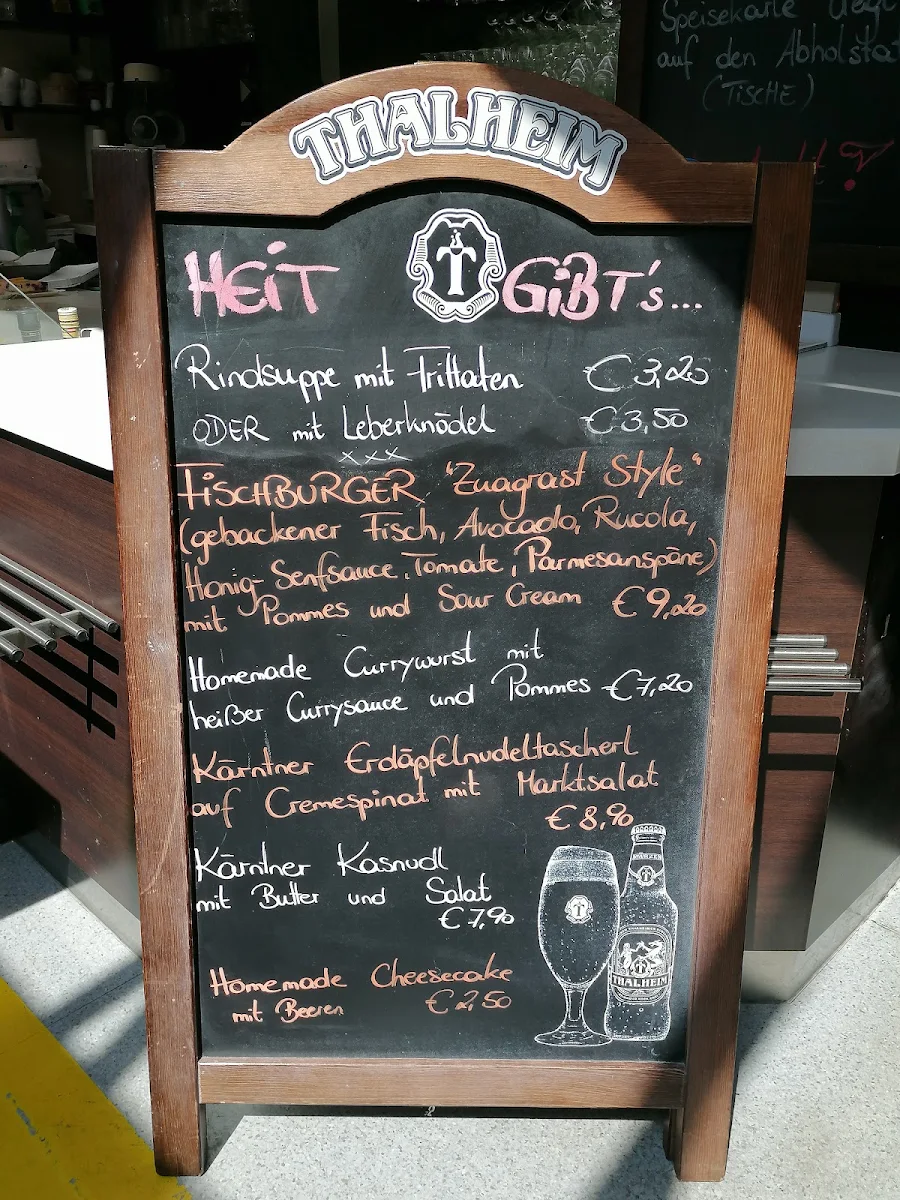 Speisekarte liegt
auf den Abholstat
(TISCHE)
THALHEIM
HEIT T GIBT's...
Rindsuppe mit Frittaten € 3,20
ODER mit Leberknödel € 3,50
xxx
FISCHBURGER "Zuagrast Style"
(gebackener Fisch, Avocado, Rucola,
Honig-Senfsauce, Tomate, Parmesanspäne)
mit Pommes und Sour Cream € 9,20
Homemade Currywurst mit
heißer Currysauce und Pommes € 7,20
Kärntner Erdäpfelnudeltascherl
auf Cremespinat mit Marktsalat
€ 8,90
Kärntner Kasnudl
mit Butter und Salat
€ 7,90
Homemade Cheesecake
mit Beeren € 2,50
T
THALHEIM